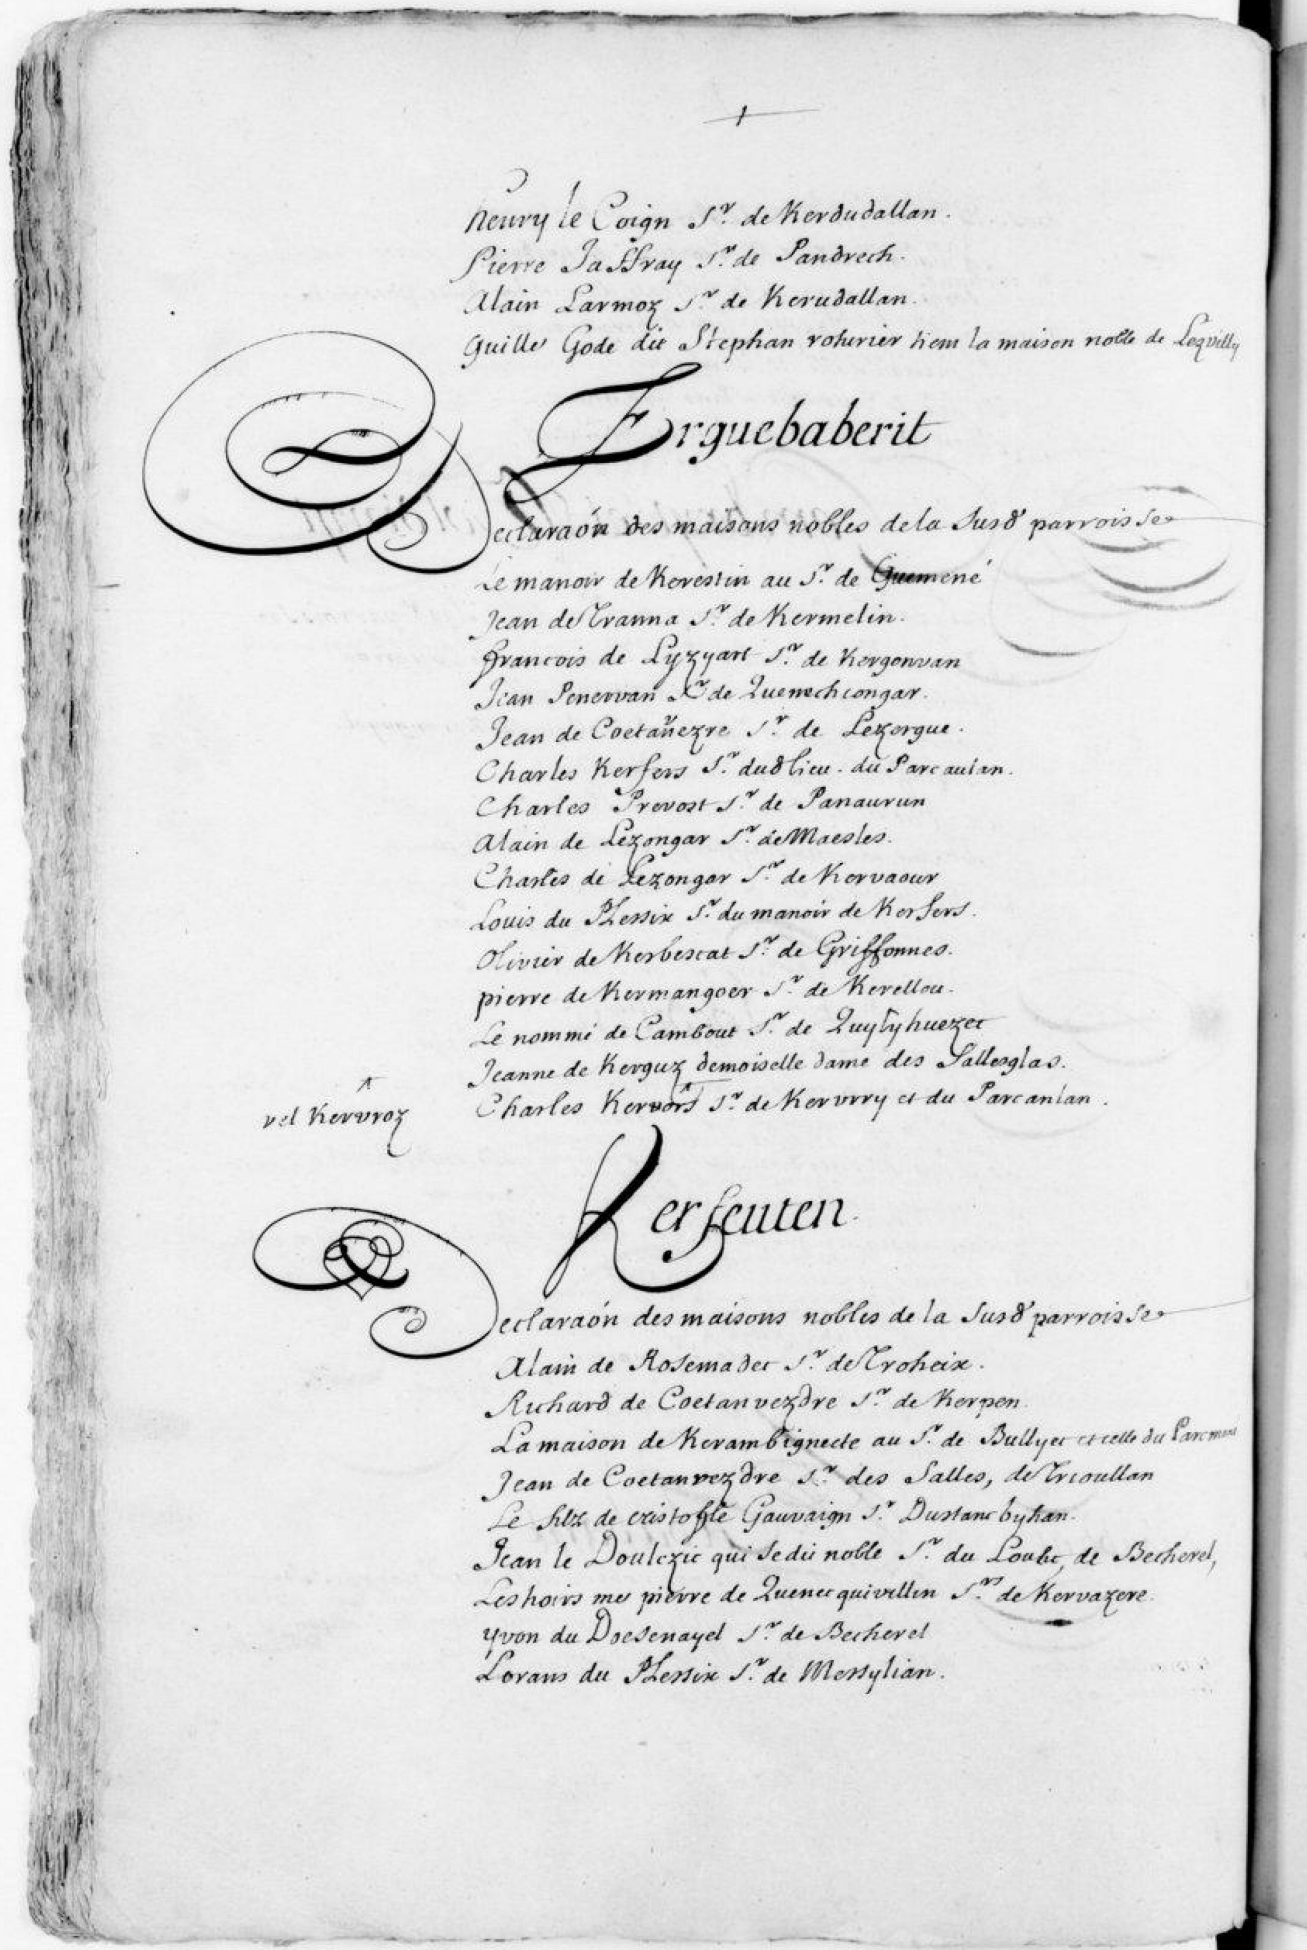 henry le Coign Sr. de Kerdudallan.
Pierre Jaffray Sr. de Pandrech.
Alain Larmoz Sr. de Kerudallan.
Guille Gode dit Stephan roturier tient la maison noble de Loqvilly
Erguebaberit
Declaraõn des maisons nobles de la Susd parroisse
Le manoir de Kerestin au Sr. de Guemené
Jean de Tranna Sr. de Kermelin.
francois de Lyzyart Sr. de Kergonvan
Jean Penervan Sr de Quenechcongar.
Jean de Coetañezre Sr. de Lezergue.
Charles Kerfers Sr. dud lieu. du Parcaulan.
Charles Prevost Sr. de Panaurun
Alain de Lezongar Sr. de Maesles.
Charles de Lezongar Sr. de Kervaour
Louis du Plessix Sr. du manoir de Kerfers.
Olivier de Kerbescat Sr. de Griffonnes.
pierre de Kermangoer Sr. de Kerellou.
Le nommé de Cambout Sr. de Quylyhuezec
Jeanne de Kerguz demoiselle dame des Sallesglas.
vel Kervroz
Charles Kervors Sr. de Kervrry et du Parcanlan.
Kerfeuten.
Declaraõn des maisons nobles de la Susd parroisse
Alain de Rosemadec Sr. de Troheix.
Richard de Coetanvezdre Sr. de Kerpen.
La maison de Kerambignecte au Sr. de Bullyec et celle du
Jean de Coetanvezdre Sr. des Salles, de Treoullan
Le filz de cristofle Gauvaign Sr. Dustancbyhan.
Jean le Doulczic qui se dit noble Sr. du de Becherel,
Les hoirs me pierre de Quenecquivillin Srs de Kervazere.
yvon du Doesenayel Sr. de Becherel
Lorans du Plessix Sr. de Messylian.